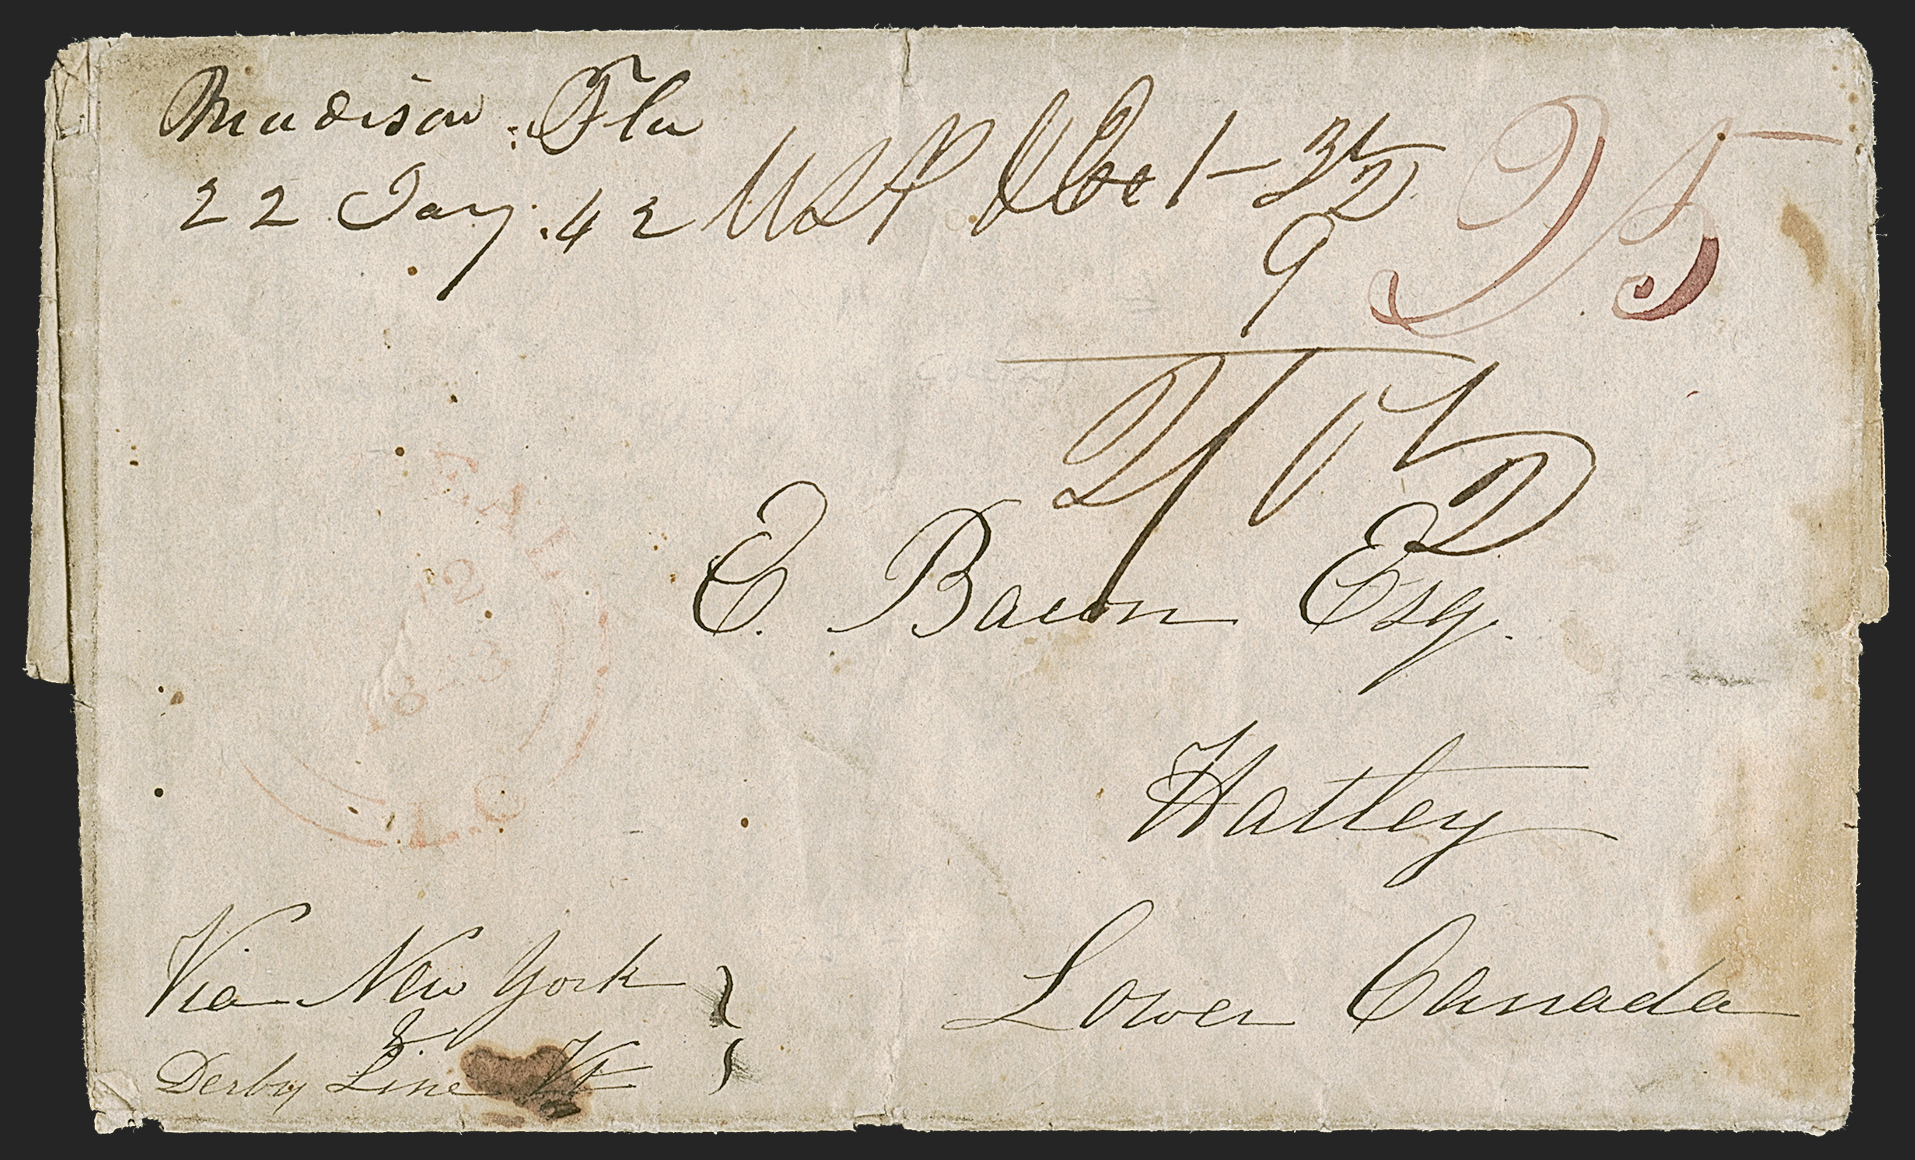 Madison. Fla
22 Jany. 42
USP 1-3½
9
25
E. Bacon Esq.
Hatley
Lower Canada
Via New York
&
Derby Line Vt
L.C